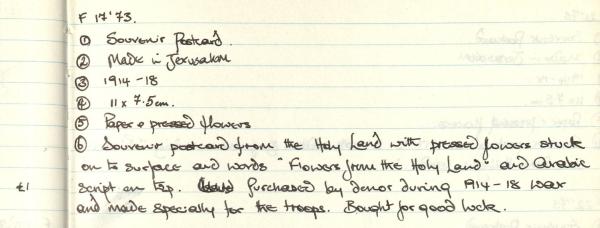 F 17'73.
① Souvenir Postcard.
② Made in Jerusalem
③ 1914-18
④ 11 x 7.5cm.
⑤ Paper & pressed flowers
⑥ Souvenir postcard from the Holy Land with pressed flowers stuck
on to surface and words "Flowers from the Holy Land" and Arabic
£1 script on top. Purchased by donor during 1914-18 war
and made specially for the troops. Bought for good luck.